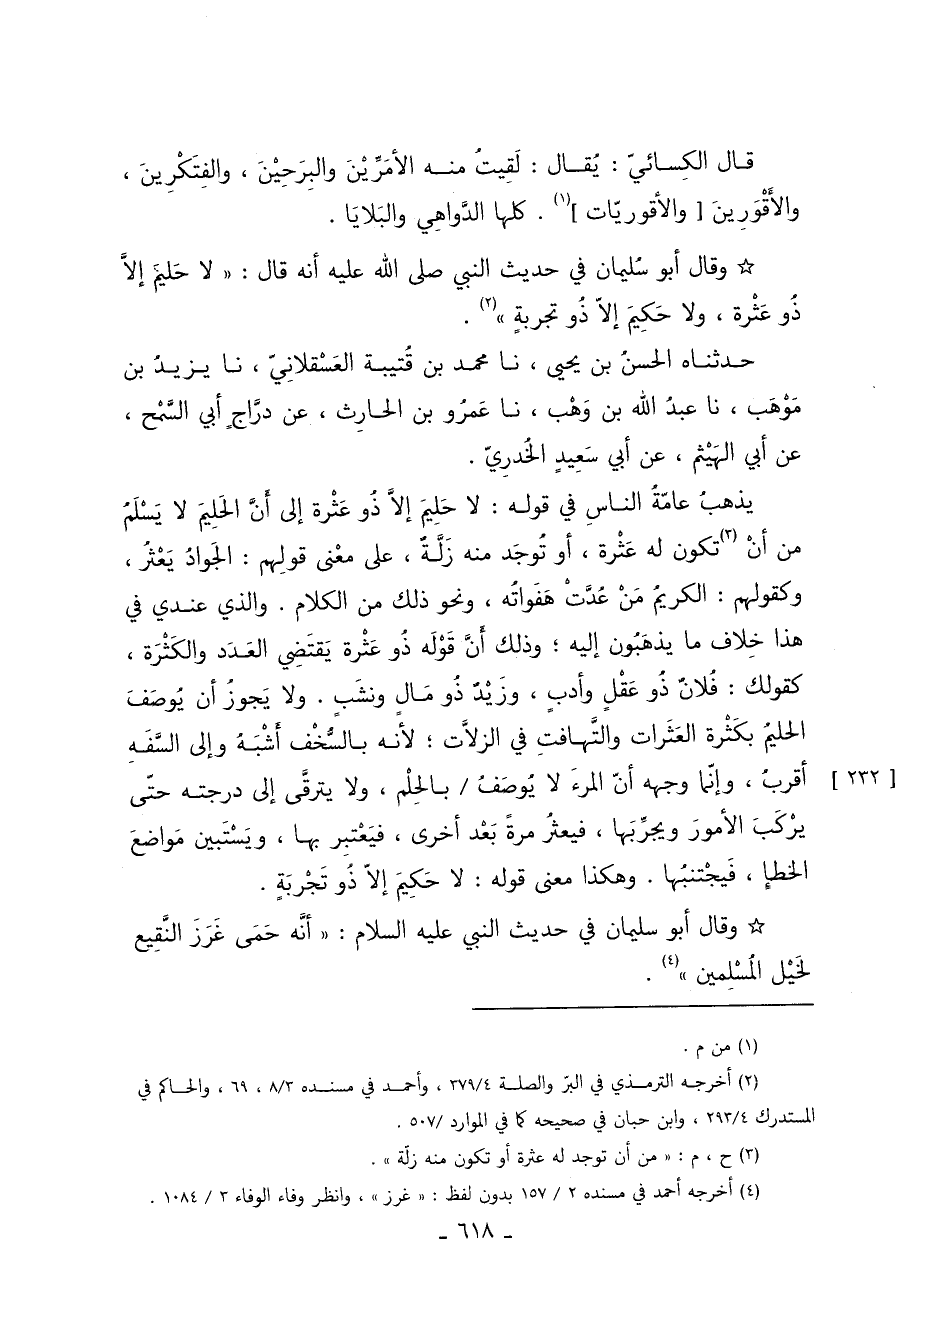 قال الكسائيّ : يُقال : لَقِيتُ منه الأمَرِّيْنَ والبِرَحِيْنَ ، والفِتَكْرِينَ ،
والأَقْوَرِينَ [ والأقوريّات ]<sup>(١)</sup> . كلها الدَّواهِي والبَلايَا .
☆ وقال أبو سُليمان في حديث النبي صلى الله عليه أنه قال : « لا حَليمَ إلاَّ
ذُو عَثْرة ، ولا حَكِيمَ إلاّ ذُو تجربةٍ »<sup>(٢)</sup> .
حدثناه الحسنُ بن يحيى ، نا محمد بن قُتيبة العَسْقلانيّ ، نا يزيدُ بن
مَوْهَب ، نا عبدُ الله بن وَهْب ، نا عَمرُو بن الحارث ، عن درَّاجٍ أبي السَّمْح ،
عن أبي الهَيْثم ، عن أبي سَعِيدٍ الخُدريّ .
يذهبُ عامّةُ الناسِ في قوله : لا حَلِيمَ إلاَّ ذُو عَثْرة إلى أَنَّ الحَلِيمَ لا يَسْلَمُ
من أنْ <sup>(٣)</sup>تكون له عَثْرة ، أو تُوجَد منه زَلَّةٌ ، على معْنى قولهم : الجَوادُ يَعْثُرُ ،
وكقولهم : الكريمُ مَنْ عُدَّتْ هَفَواتُه ، ونحو ذلك من الكلام . والذي عندي في
هذا خِلاف ما يذهَبُون إليه ؛ وذلك أَنَّ قَوْلَه ذُو عَثْرة يَقتَضِي العَدَد والكَثْرَة ،
كقولك : فُلانٌ ذو عَقْلٍ وأدبٍ ، وزَيْدٌ ذُو مَالٍ ونشَبٍ . ولا يَجوزُ أن يُوصَفَ
الحليمُ بكَثْرة العَثَرات والتَّهافتِ في الزلاَّت ؛ لأنه بالسُّخْف أَشْبَهُ وإلى السَّفَهِ
أقربُ ، وإنَّما وجهه أنّ المرءَ لا يُوصَفُ / بالحِلْم ، ولا يترقَّى إلى درجته حتّى [ ٢٣٢ ]
يرْكَبَ الأمورَ ويجرِّبَها ، فيعثرُ مرةً بَعْد أخرى ، فيَعْتبِر بها ، ويَسْتَبين مَواضعَ
الخطإِ ، فَيجْتنبُها . وهكذا معنى قوله : لا حَكِيمَ إلاّ ذُو تَجْرِبَةٍ .
☆ وقال أبو سليمان في حديث النبي عليه السلام : « أنَّه حَمَى غَرَزَ النَّقِيع
لِخَيْل المُسْلِمين »<sup>(٤)</sup> .
(١) من م .
(٢) أخرجه الترمذي في البرّ والصلة ٣٧٩/٤ ، وأحمد في مسنده ٨/٣ ، ٦٩ ، والحاكم في
المستدرك ٢٩٣/٤ ، وابن حبان في صحيحه كما في الموارد /٥٠٧ .
(٣) ح ، م : « من أن توجد له عثرة أو تكون منه زلّة » .
(٤) أخرجه أحمد في مسنده ٢ / ١٥٧ بدون لفظ : « غرز » ، وانظر وفاء الوفاء ٣ / ١٠٨٤ .
ـ ٦١٨ ـ